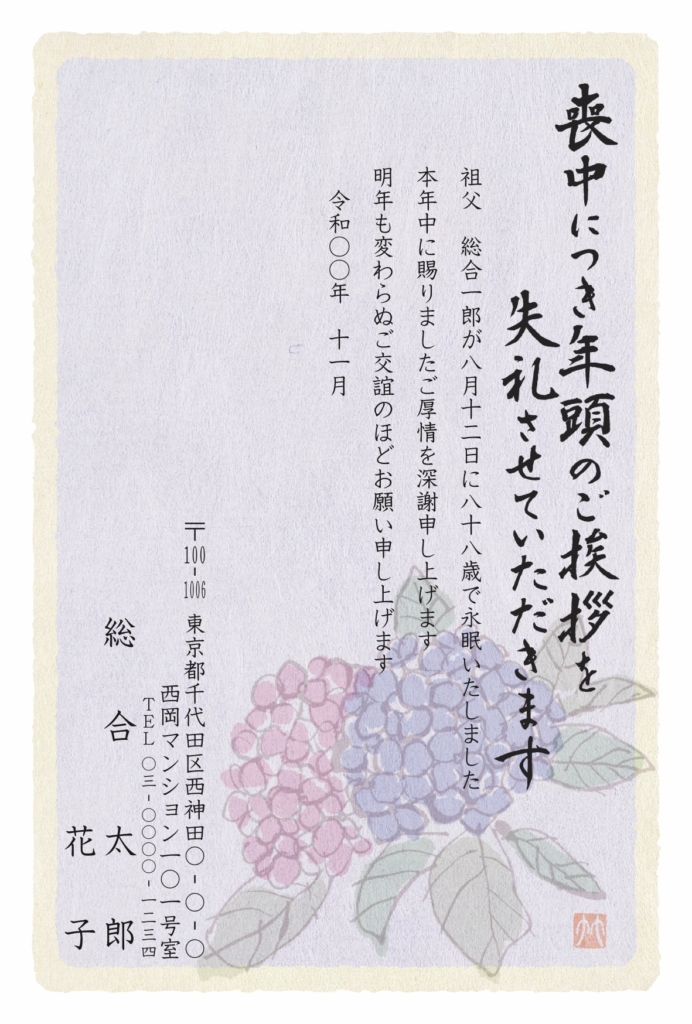 喪中につき年頭のご挨拶を
失礼させていただきます
祖父　総合一郎が八月十二日に八十八歳で永眠いたしました
本年中に賜りましたご厚情を深謝申し上げます
明年も変わらぬご交誼のほどお願い申し上げます
令和〇〇年　十一月
〒100-1006　東京都千代田区西神田〇-〇-〇
西岡マンション一〇一号室
TEL〇三-〇〇〇〇-一二三四
総　合　太　郎
花　子